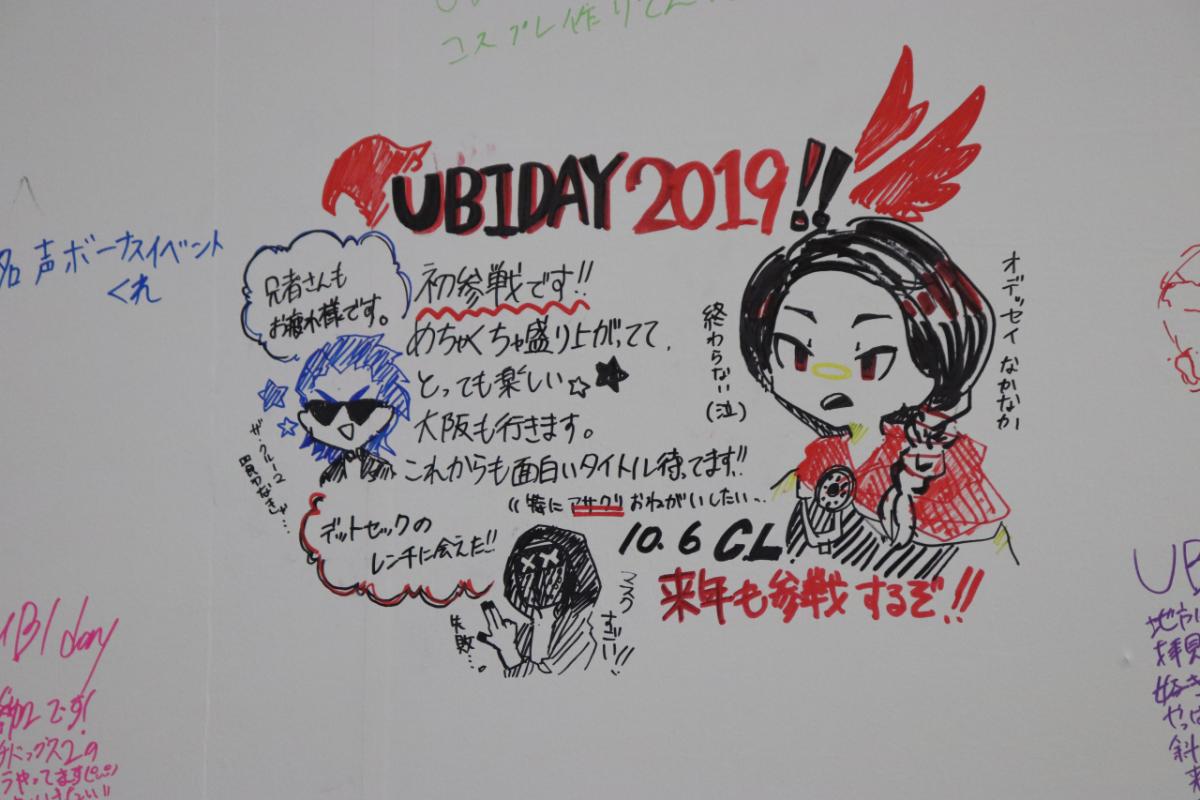 コスプレ作りてぇ
UBIDAY 2019!!
名声ボーナスイベント
くれ
兄者さんも
お疲れ様です。
初参戦です!!
めちゃくちゃ盛り上がってて、
とっても楽しい☆★
大阪も行きます。
これからも面白いタイトル待ってます!!
((特に アサクリ おねがいしたい…
10.6 C.L.
来年も参戦するぞ!!
オデッセイ なかなか
終わらない(泣)
ザ・クルー2
デットセックの
レンチに会えた!!
マスク
すごい!!
失敗…
UBI day
です!
ドックス2の
やってます
UB